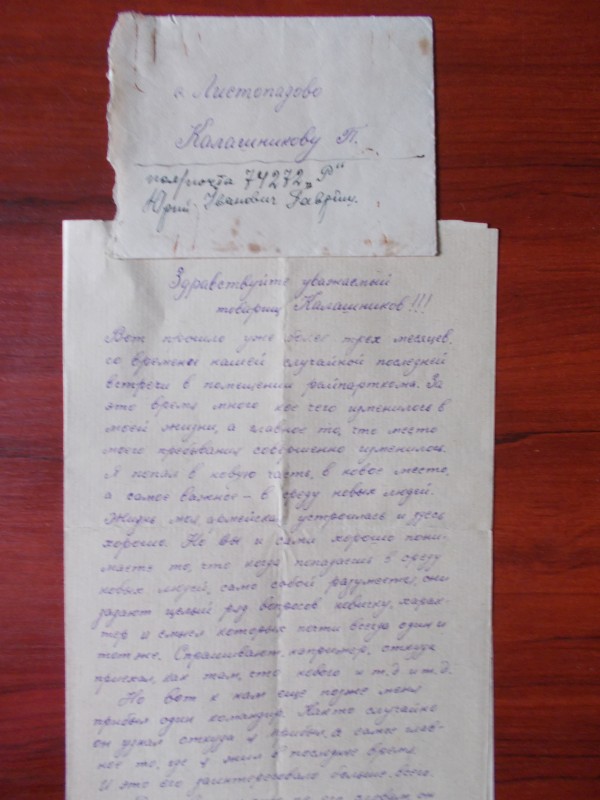 с. Листопадово
Калашникову П.
полпочта 74272 „Р"
Юрий Иванович
Здравствуйте уважаемый
товарищ Калашников!!!
Вот прошло уже более трех месяцев
со времени нашей случайной последней
встречи в помещении райпарткома. За
это время много кое чего изменилось в
моей жизни, а главное то, что место
моего пребывания совершенно изменилось.
Я попал в новую часть, в новое место,
а самое важное – в среду новых людей.
Жизнь моя армейская устроилась и здесь
хорошо. Но вы и сами хорошо пони-
маете то, что когда попадаешь в среду
новых людей, само собой разумеется, они
задают целый ряд вопросов новичку, харак-
тер и смысл которых почти всегда один и
тот же. Спрашивают, например, откуда
приехал, как там, что нового и т.д. и т.д.
Но вот к нам еще позже меня
прибыл один командир. Как то случайно
он узнал откуда я прибыл, а самое глав-
ное то, где я жил в последнее время.
И это его заинтересовало больше всего.